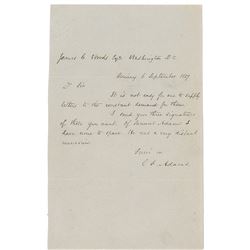 James C. Woods Esq. Washington D.C.
Quincy 6 September 1857
D. Sir
It is not easy for me to supply
letters to the constant demand for them.
I send you three signatures
of those you want. Of Samuel Adams I
have none to spare. He was a very distant
relative
Yours &c
C. F. Adams